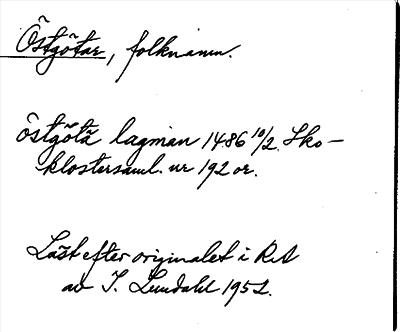 Östgötar, folknamn.
östgöta lagman 1486 10/2. Sko-
klostersaml. nr 192 or.
Läst efter originalet i RA
av I. Lundahl 1952.